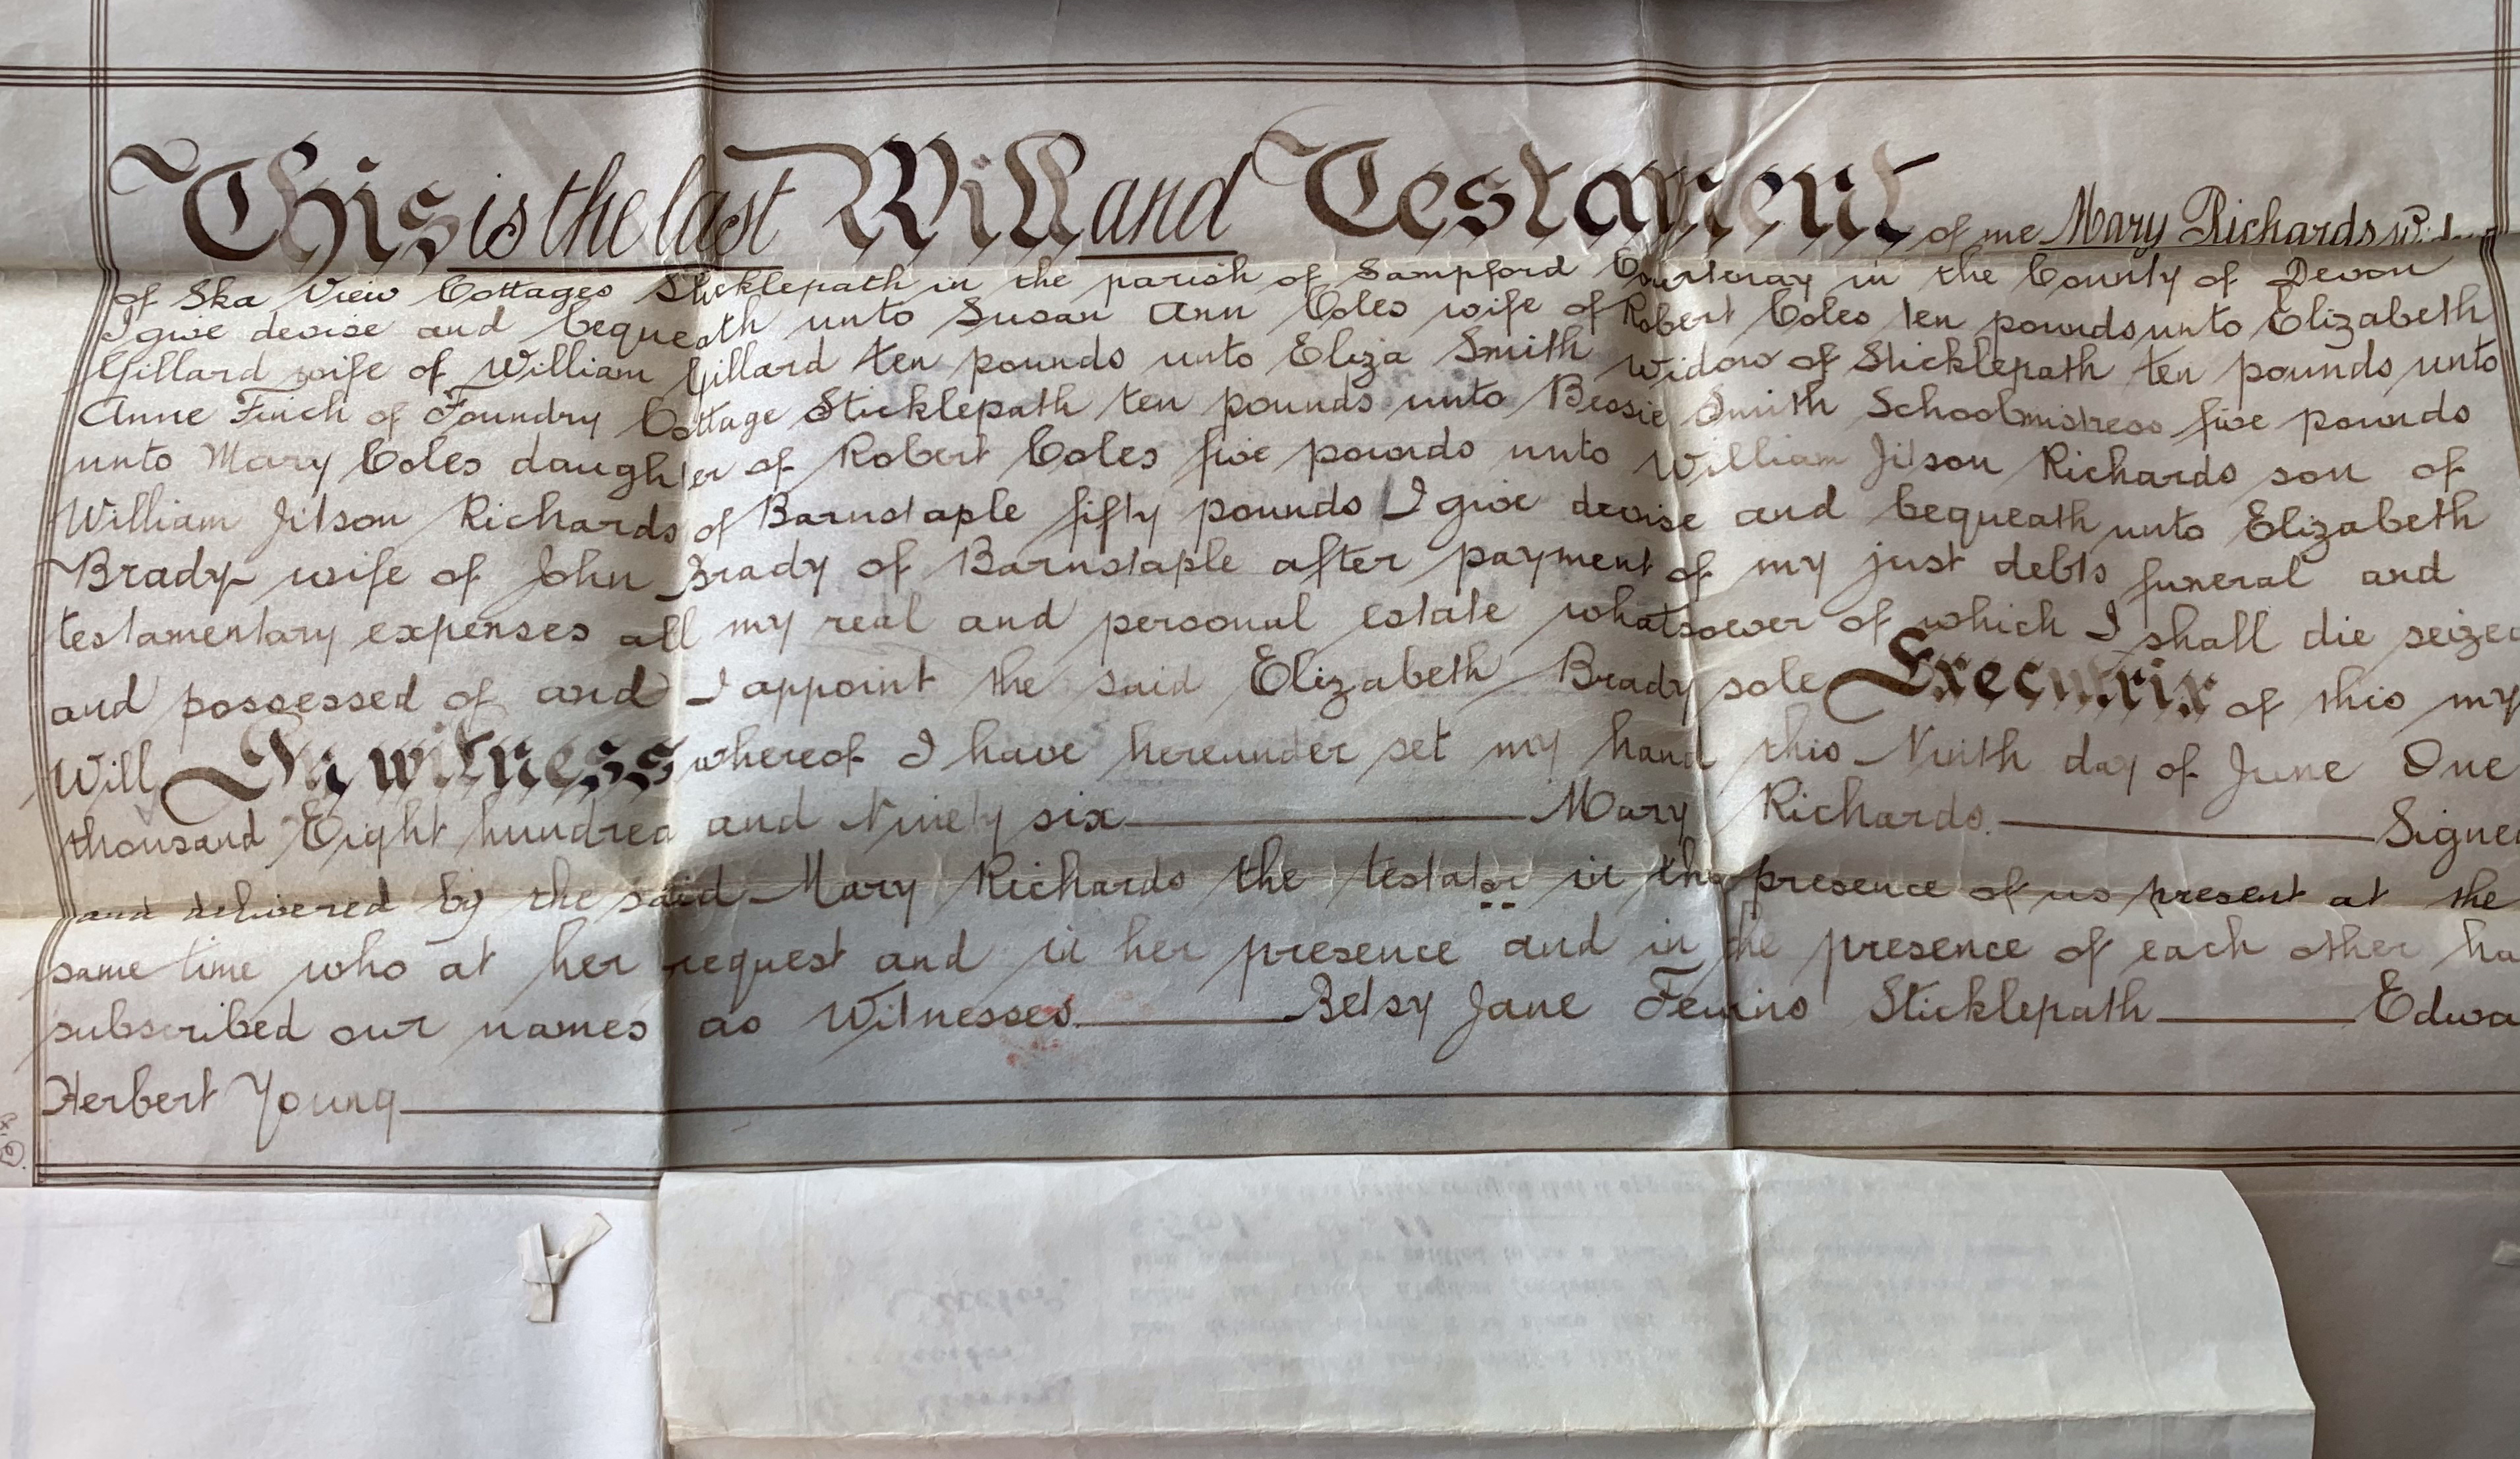 This is the last Will and Testament of me Mary Richards
of Ska View Cottages Sticklepath in the parish of Sampford Courtenay in the County of Devon
I give devise and bequeath unto Susan Ann Coles wife of Robert Coles ten pounds unto Elizabeth
Gillard wife of William Gillard ten pounds unto Eliza Smith Widow of Sticklepath ten pounds unto
Anne Finch of Foundry Cottage Sticklepath ten pounds unto Bessie Smith Schoolmistress five pounds
unto Mary Coles daughter of Robert Coles five pounds unto William Jitson Richards son of
William Jitson Richards of Barnstaple fifty pounds I give devise and bequeath unto Elizabeth
Brady wife of John Brady of Barnstaple after payment of my just debts funeral and
testamentary expenses all my real and personal estate whatsoever of which I shall die seized
and possessed of and I appoint the said Elizabeth Brady sole Executrix of this my
Will In witness whereof I have hereunder set my hand this Ninth day of June One
thousand Eight hundred and Ninety six Mary Richards. Signe
and delivered by the said Mary Richards the testator in the presence of us present at the
same time who at her request and in her presence and in the presence of each other ha
subscribed our names as Witnesses Betsy Jane Sticklepath Edwa
Herbert Young